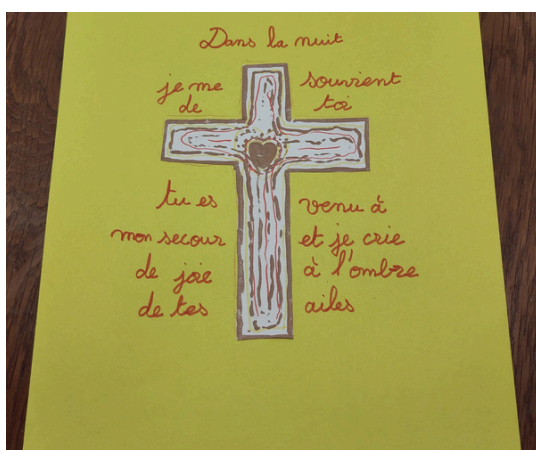 Dans la nuit
je me souvient
de toi
tu es venu à
mon secour et je crie
de joie à l'ombre
de tes ailes